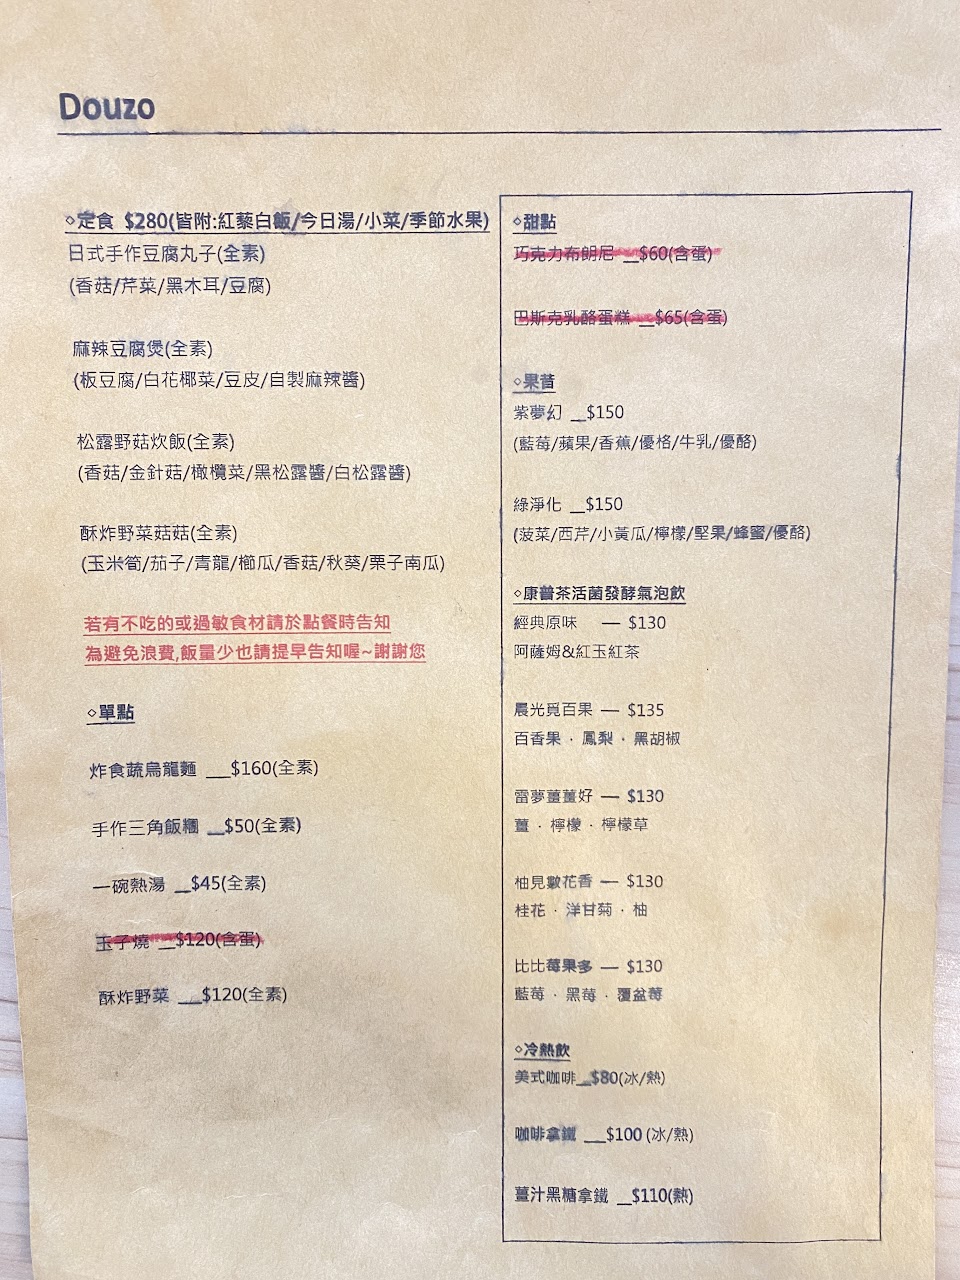 Douzo
◇定食 $280(皆附:紅藜白飯/今日湯/小菜/季節水果)
日式手作豆腐丸子(全素)
(香菇/芹菜/黑木耳/豆腐)
麻辣豆腐煲(全素)
(板豆腐/白花椰菜/豆皮/自製麻辣醬)
松露野菇炊飯(全素)
(香菇/金針菇/橄欖菜/黑松露醬/白松露醬)
酥炸野菜菇菇(全素)
(玉米筍/茄子/青龍/櫛瓜/香菇/秋葵/栗子南瓜)
若有不吃的或過敏食材請於點餐時告知
為避免浪費,飯量少也請提早告知喔~謝謝您
◇單點
炸食蔬烏龍麵 __$160(全素)
手作三角飯糰 __$50(全素)
一碗熱湯 __$45(全素)
玉子燒 __$120(含蛋)
酥炸野菜 __$120(全素)
◇甜點
巧克力布朗尼 __$60(含蛋)
巴斯克乳酪蛋糕 __$65(含蛋)
◇果昔
紫夢幻 __$150
(藍莓/蘋果/香蕉/優格/牛乳/優酪)
綠淨化 __$150
(菠菜/西芹/小黃瓜/檸檬/堅果/蜂蜜/優酪)
◇康普茶活菌發酵氣泡飲
經典原味 — $130
阿薩姆&紅玉紅茶
晨光覓百果 — $135
百香果 · 鳳梨 · 黑胡椒
雷夢薑薑好 — $130
薑 · 檸檬 · 檸檬草
柚見數花香 — $130
桂花 · 洋甘菊 · 柚
比比莓果多 — $130
藍莓 · 黑莓 · 覆盆莓
◇冷熱飲
美式咖啡__$80(冰/熱)
咖啡拿鐵 __$100 (冰/熱)
薑汁黑糖拿鐵 __$110(熱)